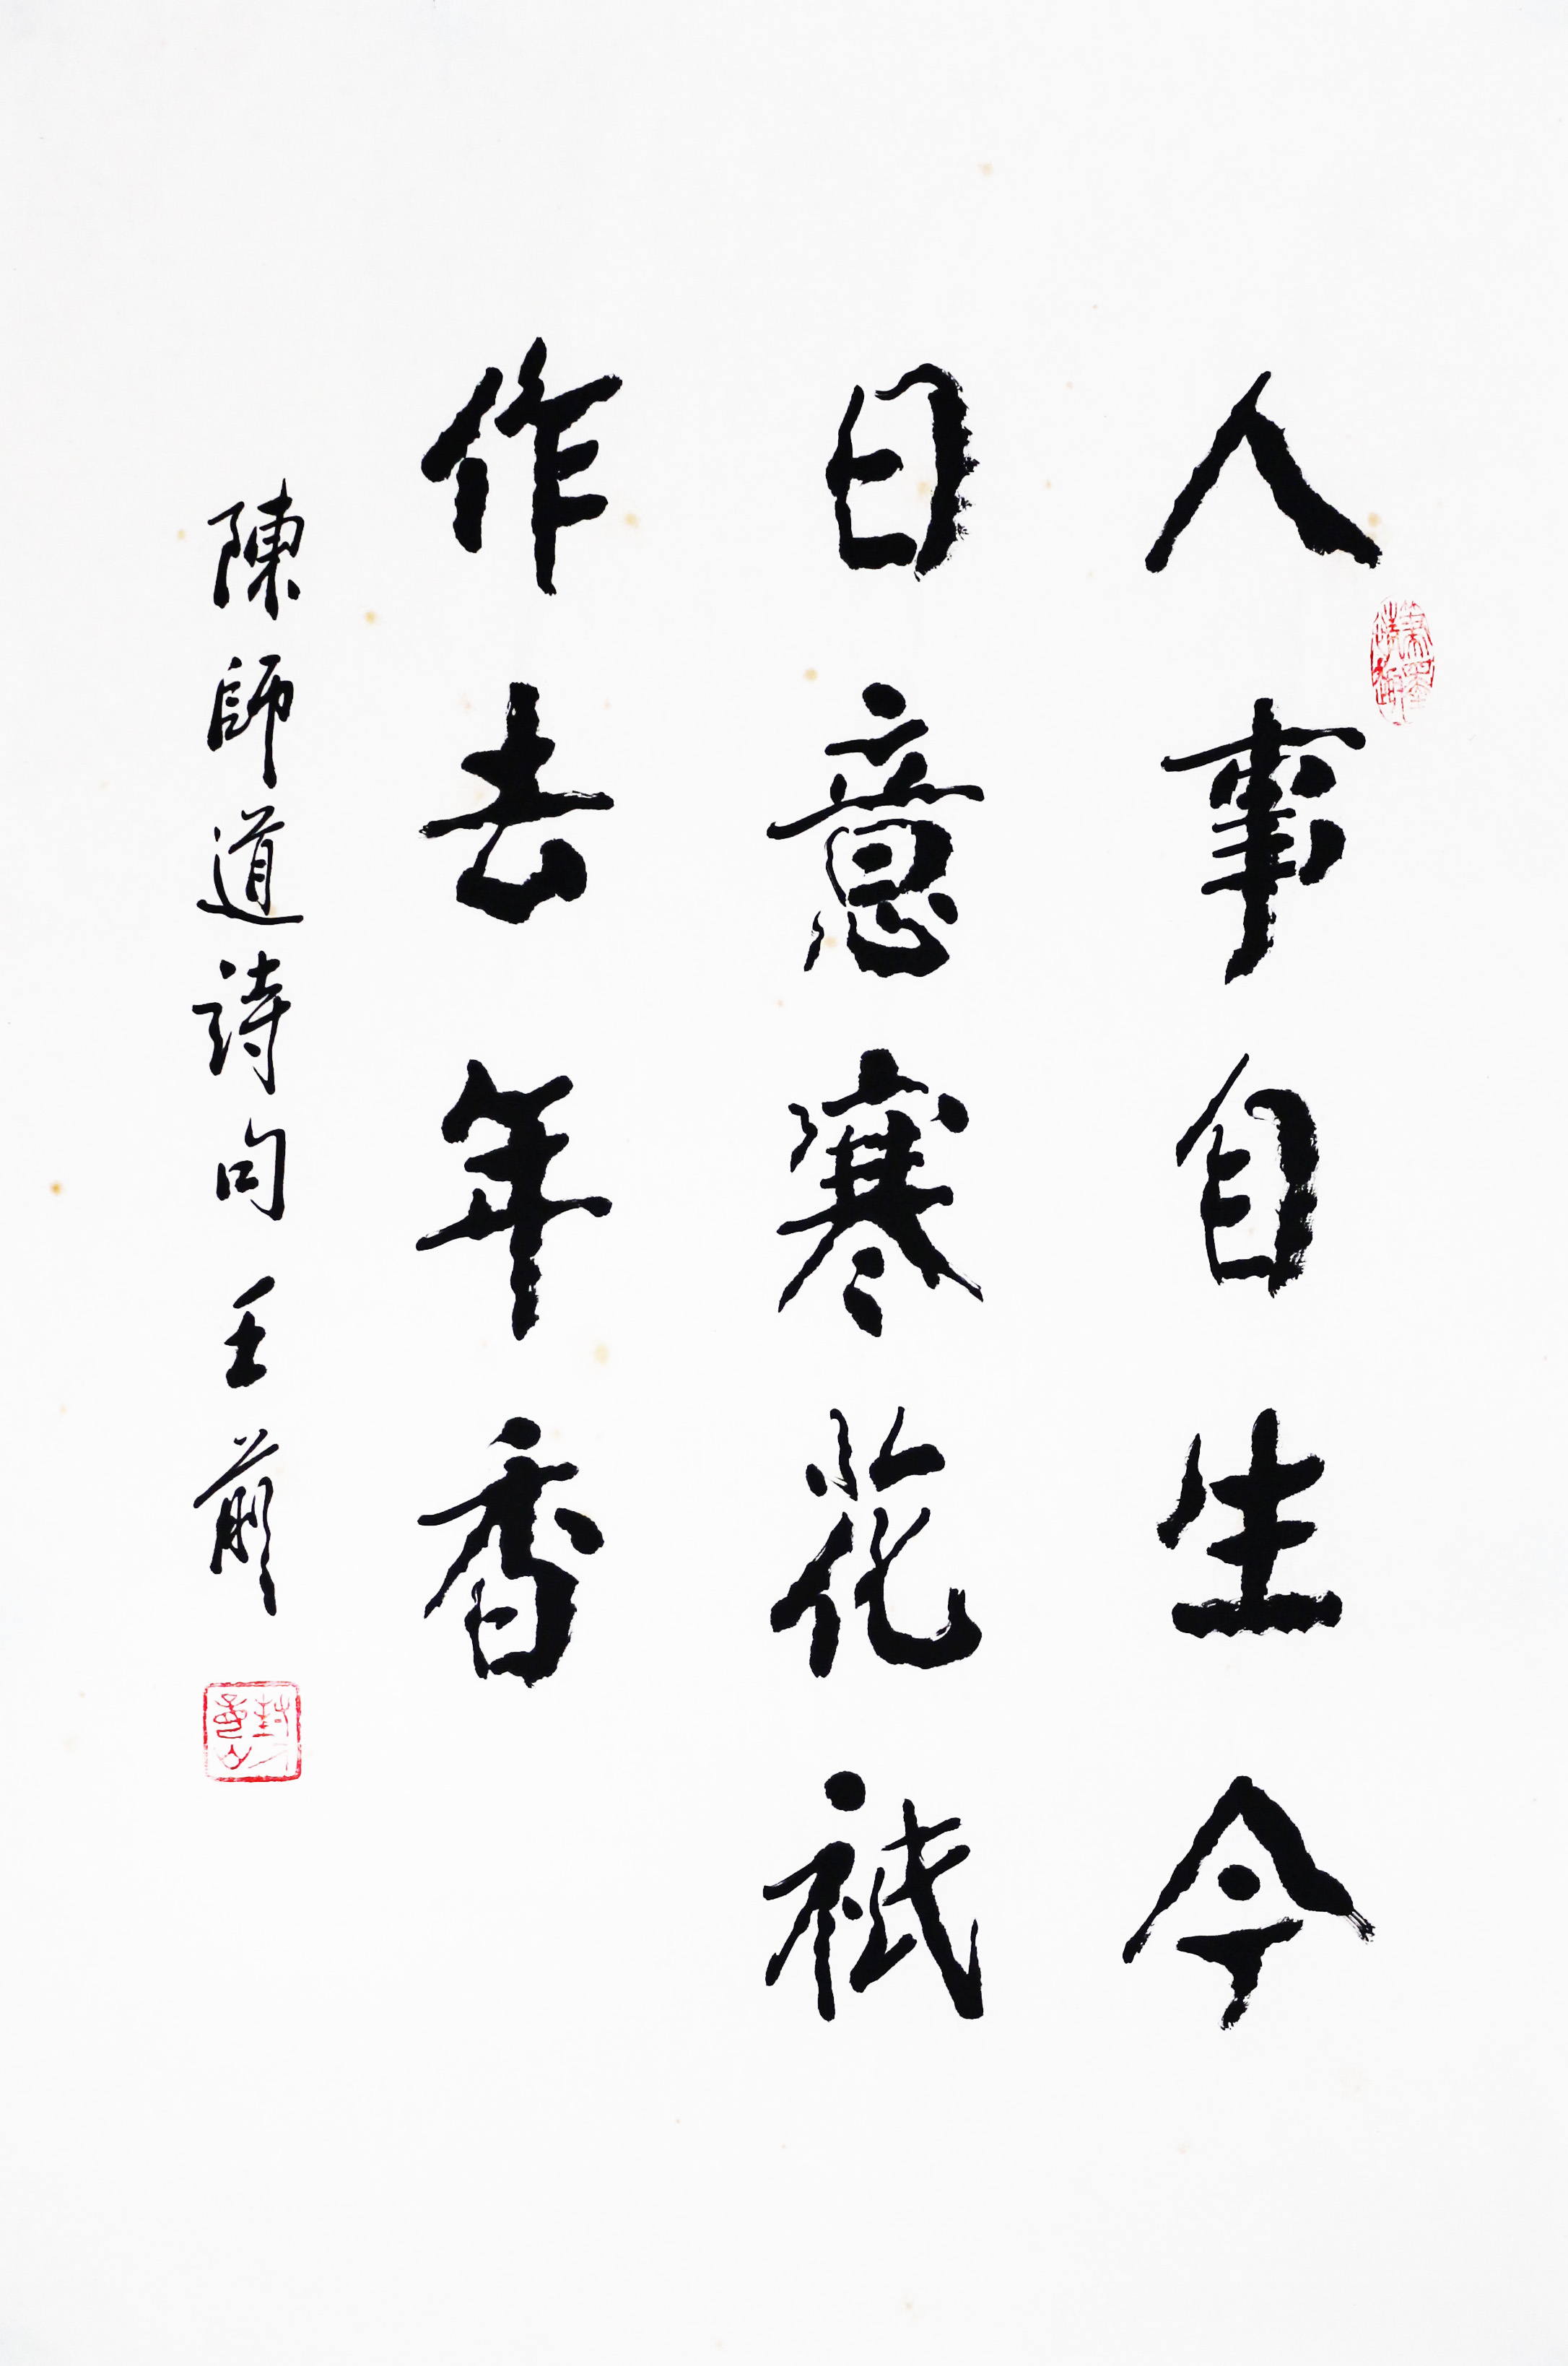 人事自生今
日意寒花祇
作去年香
陳師道詩句王蘄